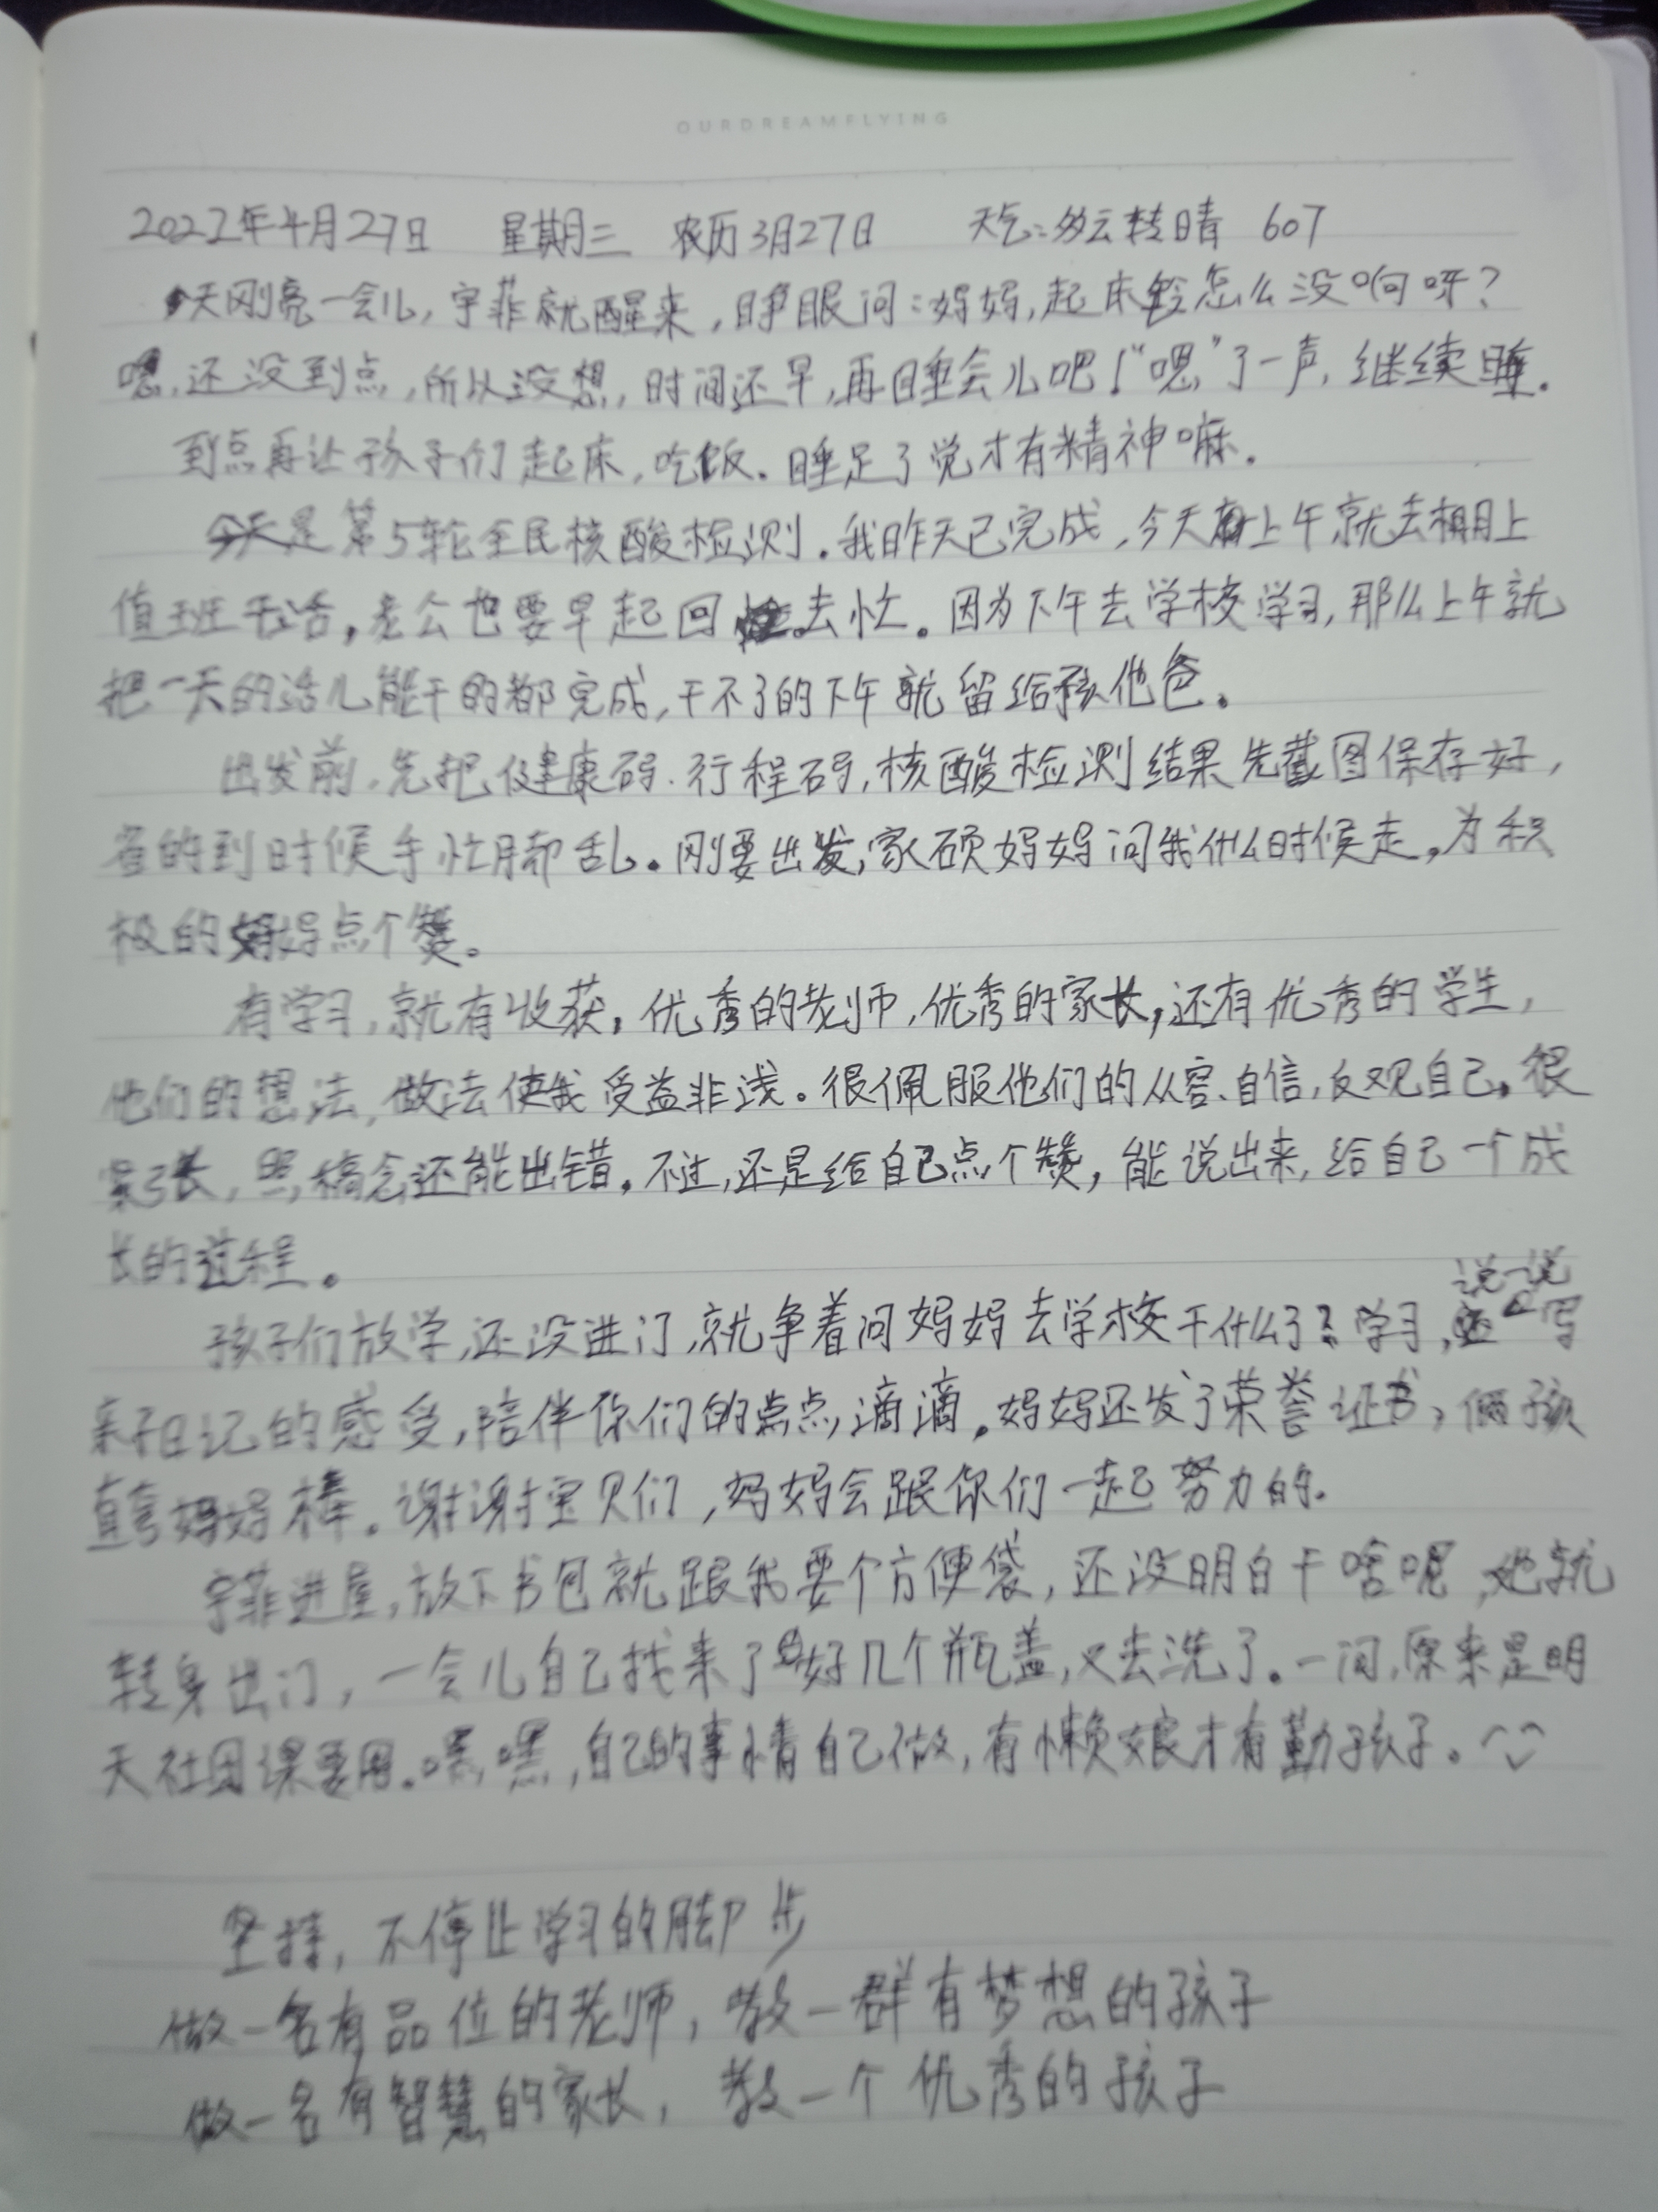 OURDREAMFLYING
2022年4月27日 星期三 农历3月27日 天气:多云转晴 607
天刚亮一会儿,宇菲就醒来,睁眼问:妈妈,起床铃怎么没响呀?
嗯,还没到点,所以没想,时间还早,再睡会儿吧!“嗯”了一声,继续睡.
到点再让孩子们起床,吃饭.睡足了觉才有精神嘛.
今天是第5轮全民核酸检测.我昨天已完成,今天上午就去棚上
值班干活,老公也要早起回去忙。因为下午去学校学习,那么上午就
把一天的活儿能干的都完成,干不了的下午就留给孩他爸。
出发前,先把健康码.行程码,核酸检测结果先截图保存好,
省的到时候手忙脚乱。刚要出发,家硕妈妈问我什么时候走,为积
极的妈妈点个赞。
有学习,就有收获,优秀的老师,优秀的家长,还有优秀的学生,
他们的想法,做法使我受益非浅。很佩服他们的从容、自信,反观自己,很
紧张,照稿念还能出错。不过,还是给自己点个赞,能说出来,给自己一个成
长的过程。
说一说
孩子们放学,还没进门,就争着问妈妈去学校干什么了?学习,写
亲子日记的感受,陪伴你们的点点滴滴。妈妈还发了荣誉证书,俩孩
直夸妈妈棒。谢谢宝贝们,妈妈会跟你们一起努力的.
宇菲进屋,放下书包就跟我要个方便袋,还没明白干啥呢,她就
转身出门,一会儿自己找来了好几个瓶盖,又去洗了。一问,原来是明
天社团课要用.嘿嘿,自己的事情自己做,有懒娘才有勤孩子。
坚持,不停止学习的脚步
做一名有品位的老师,教一群有梦想的孩子
做一名有智慧的家长,教一个优秀的孩子